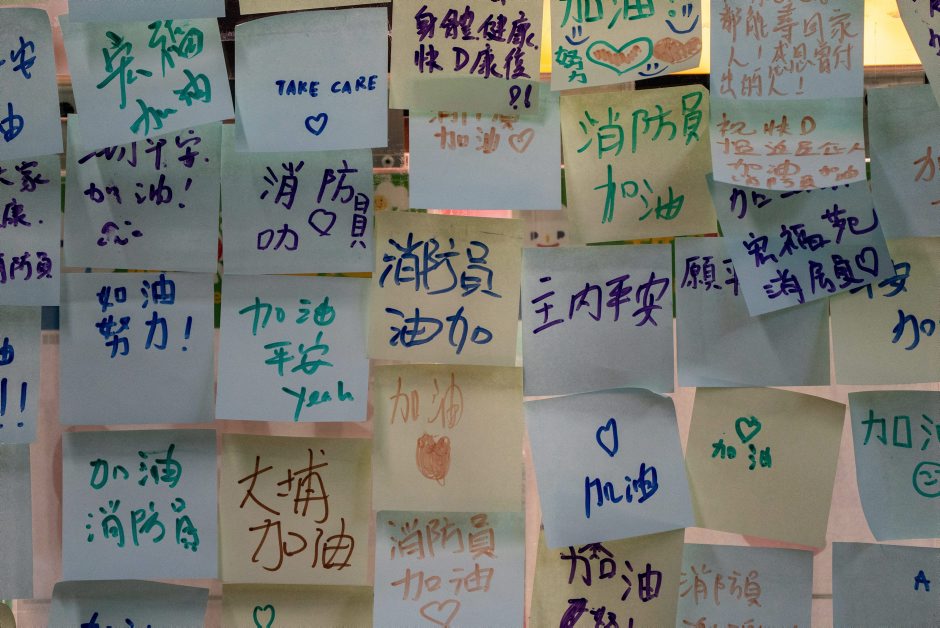 安
油
宏福
加油
TAKE CARE
身體健康
快D康復
!!
加油!
努力
都能尋回家
人!感恩曾付
出的人!
大家
康.
消防員
平安.
加油!
消防員
加油
消防員
加油
祝快D
加油
宏福苑
消防員
如油
努力!
加油
平安
yeah
消防員
油加
主内平安
願平
安
加
!!
加油
消防員
大埔
加油
加油
加油
加油
加油
消防員
加油
加油
消防員
A